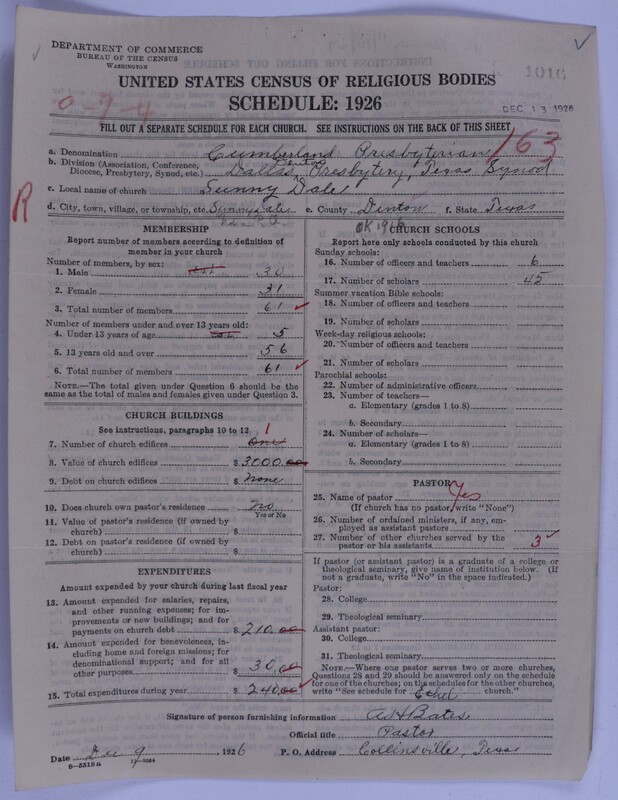 DEPARTMENT OF COMMERCE
BUREAU OF THE CENSUS
WASHINGTON
UNITED STATES CENSUS OF RELIGIOUS BODIES
SCHEDULE: 1926
1016
DEC 13 1926
0-7-4
FILL OUT A SEPARATE SCHEDULE FOR EACH CHURCH. SEE INSTRUCTIONS ON THE BACK OF THIS SHEET
163
a. Denomination Cumberland Presbyterian
b. Division (Association, Conference, Diocese, Presbytery, Synod, etc.) Dallas Denton Presbytery, Texas Synod
R
c. Local name of church Sunny Dale
d. City, town, village, or township, etc. Sunnydale e. County Denton f. State Texas
OK 1906
MEMBERSHIP
Report number of members according to definition of member in your church
Number of members, by sex:
1. Male 30
2. Female 31
3. Total number of members 61
Number of members under and over 13 years old:
4. Under 13 years of age 5
5. 13 years old and over 56
6. Total number of members 61
NOTE.—The total given under Question 6 should be the same as the total of males and females given under Question 3.
CHURCH BUILDINGS
See instructions, paragraphs 10 to 12
7. Number of church edifices one 1
8. Value of church edifices $ 3000.00
9. Debt on church edifices $ None
10. Does church own pastor's residence No
Yes or No
11. Value of pastor's residence (if owned by church) $
12. Debt on pastor's residence (if owned by church) $
EXPENDITURES
Amount expended by your church during last fiscal year
13. Amount expended for salaries, repairs, and other running expenses; for improvements or new buildings; and for payments on church debt $ 210.00
14. Amount expended for benevolences, including home and foreign missions; for denominational support; and for all other purposes $ 30.00
15. Total expenditures during year $ 240.00
CHURCH SCHOOLS
Report here only schools conducted by this church
Sunday schools:
16. Number of officers and teachers 6
17. Number of scholars 45
Summer vacation Bible schools:
18. Number of officers and teachers
19. Number of scholars
Week-day religious schools:
20. Number of officers and teachers
21. Number of scholars
Parochial schools:
22. Number of administrative officers
23. Number of teachers—
a. Elementary (grades 1 to 8)
b. Secondary
24. Number of scholars—
a. Elementary (grades 1 to 8)
b. Secondary
PASTOR
25. Name of pastor Yes
(If church has no pastor, write "None")
26. Number of ordained ministers, if any, employed as assistant pastors
27. Number of other churches served by the pastor or his assistants 3
If pastor (or assistant pastor) is a graduate of a college or theological seminary, give name of institution below. (If not a graduate, write "No" in the space indicated.)
Pastor:
28. College
29. Theological seminary
Assistant pastor:
30. College
31. Theological seminary
NOTE.—Where one pastor serves two or more churches, Questions 28 and 29 should be answered only on the schedule for one of the churches; on the schedules for the other churches, write "See schedule for Ethel church."
Signature of person furnishing information A H Bates
Official title Pastor
Date Dec 9, 1926 P. O. Address Collinsville, Texas